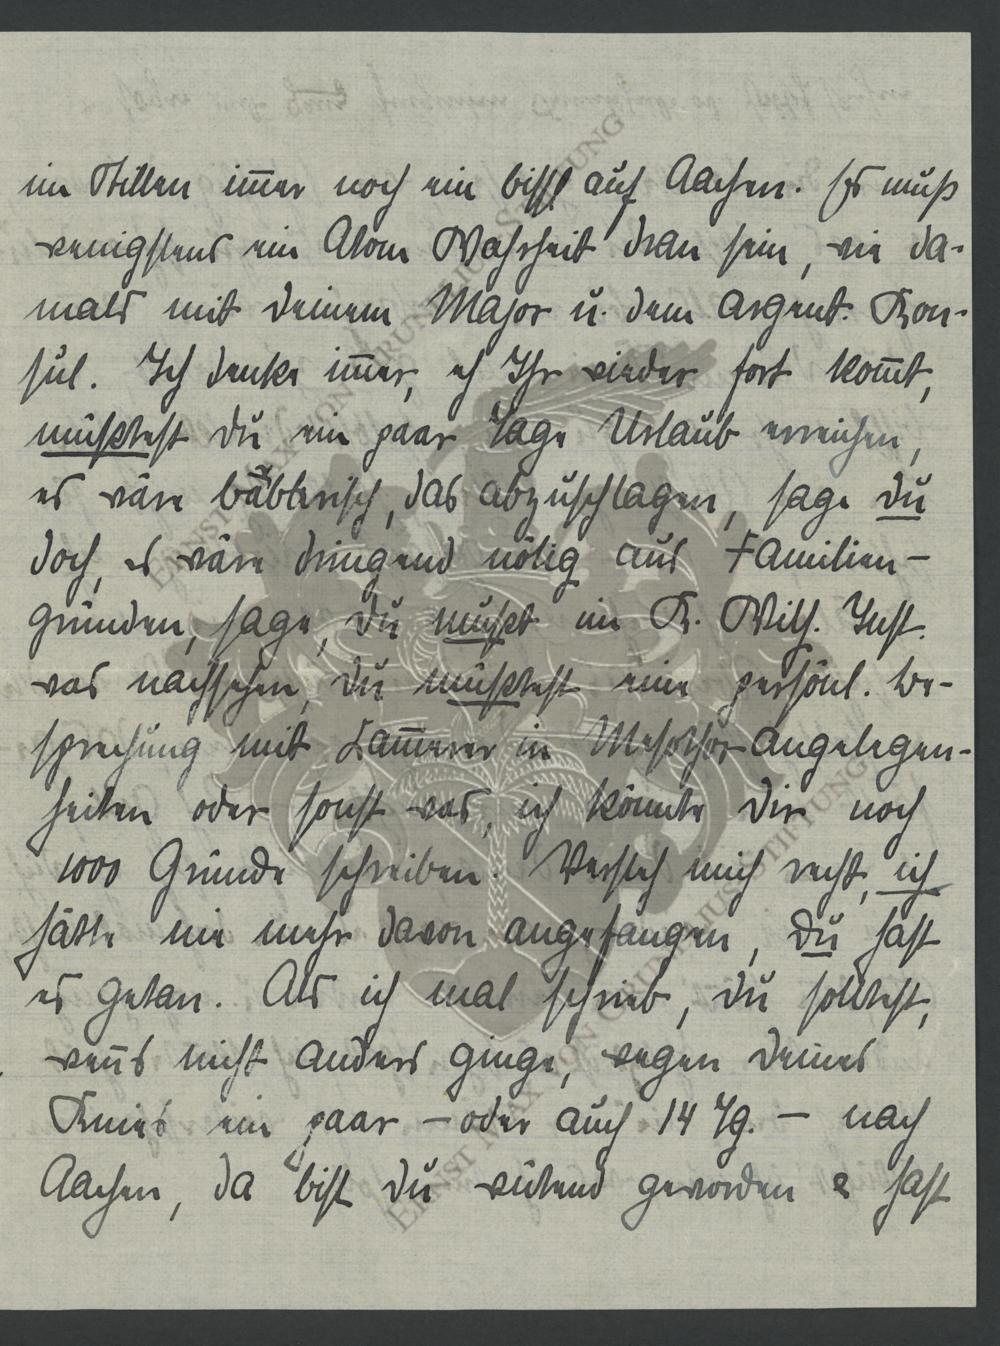 im Stillen im̅er noch ein bissl auf Aachen. Es muß
wenigstens ein Atom Wahrheit dran sein, wie da-
mals mit deinem Major u. dem argent. Kon-
sul. Ich denke im̅er, eh Ihr wieder fort kom̅t,
müßtest du ein paar Tage Urlaub erreichen,
es wäre das abzuschlagen, sage du
doch, es wäre dringend nötig aus Familien-
gründen, sage, du mußt im K. Wilh. Inst.
was nachsehen, du müßtest eine persönl. Be-
sprechung mit Lam̅erer in Mesothor-angelegen-
heiten oder sonst was, ich könnte dir noch
1000 Gründe schreiben. Versteh mich recht, ich
hätte nie mehr davon angefangen, du hast
es getan. Als ich mal schrieb, du solltest,
wen̅s nicht anders ginge, wegen deines
Knies ein paar – oder auch 14 Tg. – nach
Aachen, da bist du wütend geworden & hast
ERNST MAX VON GRUNELIUS STIFTUNG
ERNST MAX VON GRUNELIUS STIFTUNG